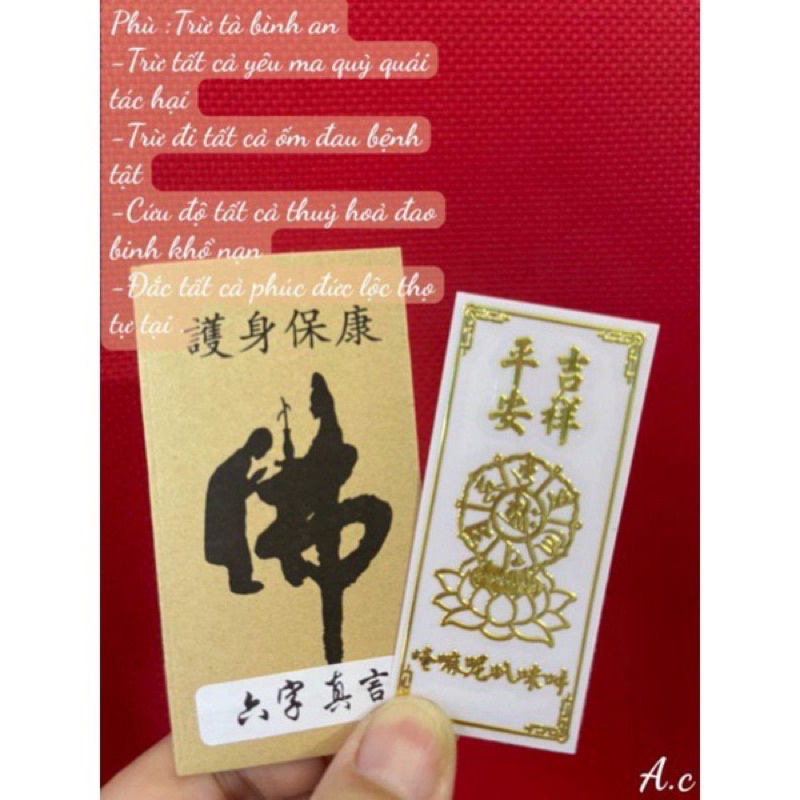 Phù :Trừ tà bình an
-Trừ tất cả yêu ma quỷ quái
tác hại
-Trừ đi tất cả ốm đau bệnh
tật
-Cứu độ tất cả thuỷ hoả đao
binh khổ nạn
-Đắc tất cả phúc đức lộc thọ
tự tại .
護身保康
佛
六字真言
吉祥
平安
唵嘛呢叭咪吽
A.c